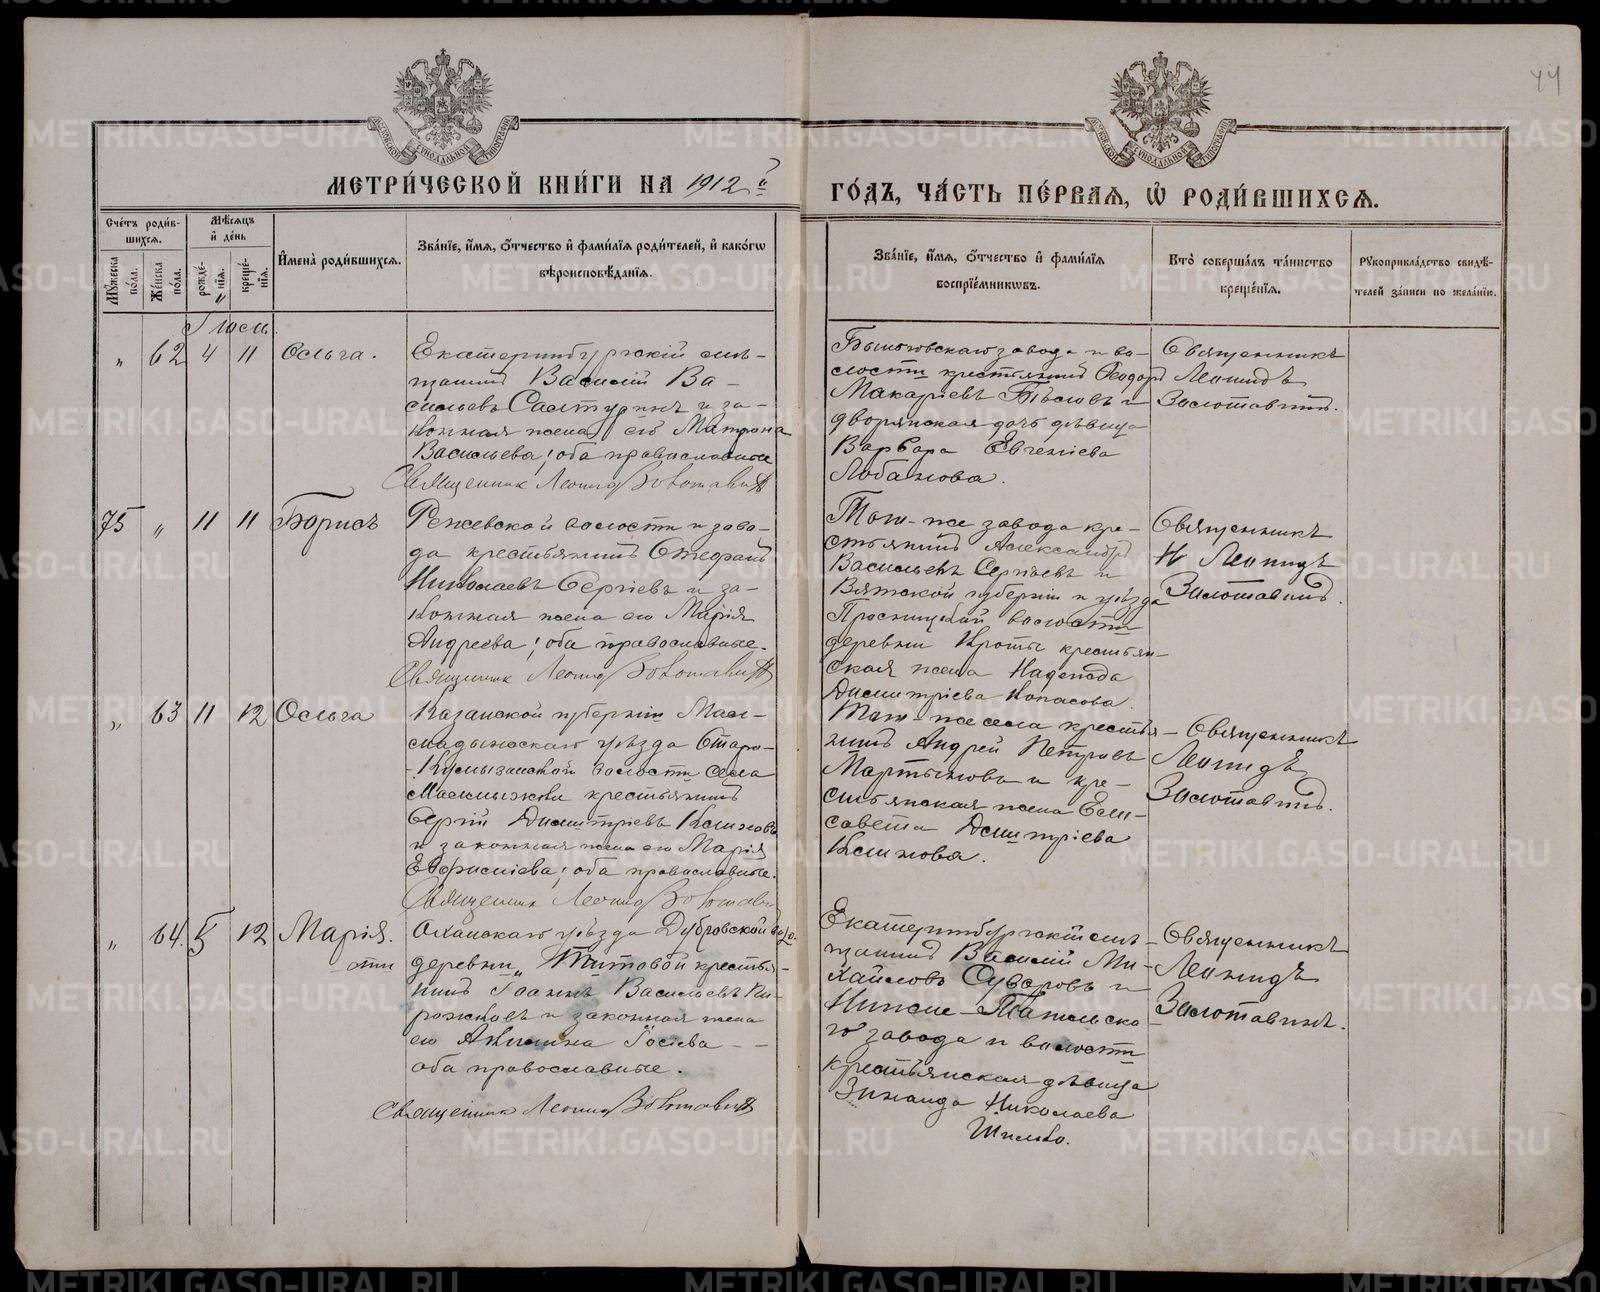 44
МЕТРИ́ЧЕСКОЙ КНИ́ГИ НА 1912 й
ГО́ДЪ, ЧА́СТЬ ПЕ́РВАЯ, Ѡ РОДИ́ВШИХСЯ.
Сче́тъ роди́в-
шихся.
Мѣ́сяцъ
и де́нь
Му́жеска по́ла.
Же́нска по́ла.
рожде́-
нїя.
креще́-
нїя.
Имена̀ роди́вшихся.
Зва́нїе, и́мя, о́тчество и фами́лїя роди́телей, и како́гѡ
вѣроисповѣ́данїя.
Зва́нїе, и́мя, о́тчество и фами́лїя
воспрїе́мникѡвъ.
Кто̀ соверша́лъ та́инство
креще́нїя.
Рукоприкла́дство свидѣ́-
телей за́писи по жела́нїю.
Іюль.
„ 62 4 11 Ольга.
Екатеринбургскій мѣ-
щанинъ Василій Ва-
сильевъ Салтуринъ и за-
конная жена его Матрона
Васильева; оба православные
Священник Леонид Золотавин
Бынговскаго завода и во-
лости крестьянинъ Ѳеодоръ
Макаріевъ Бѣловъ и
дворянская дочь дѣвица
Варвара Евгеніева
Лобанова.
Священникъ
Леонидъ
Золотавинъ.
75 „ 11 11 Борисъ
Режевской волости и заво-
да крестьянинъ Стефанъ
Николаевъ Сергѣевъ и за-
конная жена его Марія
Андреева; оба православные.
Священник Леонид Золотавин
Того-же завода кре-
стьянинъ Александръ
Васильевъ Сергѣевъ и
Вятской губерніи и уѣзда
Просницкой волости
деревни Кроты крестьян-
ская жена Надежда
Димитріева Копасова.
Священникъ
Леонидъ
Золотавинъ.
„ 63 11 12 Ольга
Казанской губерніи Мам-
мадышскаго уѣзда Старо-
села
Масмыжки крестьянинъ
Сергій Димитріевъ Климовъ
и законная жена его Марія
Евфиміева; оба православные.
Священник Леонид Золотавин
Того-же села крестья-
нинъ Андрей Петровъ
Мартыновъ и кре-
стьянская жена Ели-
савета Димитріева
Климова.
Священникъ
Леонидъ
Золотавинъ.
„ 64. 5 12 Марія.
Оханскаго уѣзда Дубровской вол.
деревни Титовой крестья-
нинъ Іоаннъ Васильевъ Пи-
рожковъ и законная жена
его Акилина
оба православные.
Священник Леонид Золотавин
Екатеринбургскій мѣ-
щанинъ Василій Ми-
хайловъ Суворовъ и
Нижне-Тагильска-
го завода и волости
крестьянская дѣвица
Зинаида Николаева
Священникъ
Леонидъ
Золотавинъ.
METRIKI.GASO-URAL.RU